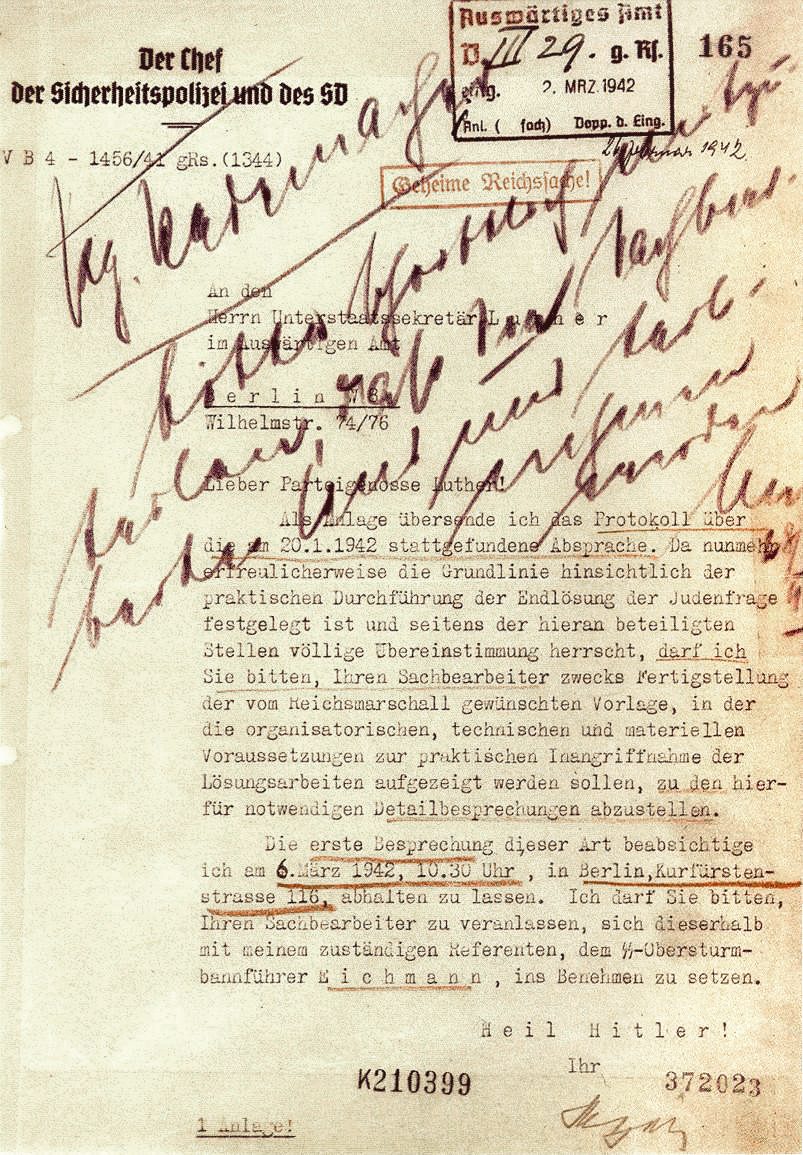 Der Chef
der Sicherheitspolizei und des SD
IV B 4 - 1456/41 gRs.(1344)
Auswärtiges Amt
D III 29. g. Rs.
eing. 2. MRZ.1942
Anl. ( fach) Dopp. d. Eing.
165
26. Februar 1942.
Geheime Reichssache!
An den
Herrn Unterstaatssekretär L u t h e r
im Auswärtigen Amt
B e r l i n W 8
Wilhelmstr. 74/76
Lieber Parteigenosse Luther!
Als Anlage übersende ich das Protokoll über
die am 20.1.1942 stattgefundene Absprache. Da nunmehr
erfreulicherweise die Grundlinie hinsichtlich der
praktischen Durchführung der Endlösung der Judenfrage
festgelegt ist und seitens der hieran beteiligten
Stellen völlige Übereinstimmung herrscht, darf ich
Sie bitten, Ihren Sachbearbeiter zwecks Fertigstellung
der vom Reichsmarschall gewünschten Vorlage, in der
die organisatorischen, technischen und materiellen
Voraussetzungen zur praktischen Inangriffnahme der
Lösungsarbeiten aufgezeigt werden sollen, zu den hier-
für notwendigen Detailbesprechungen abzustellen.
Die erste Besprechung dieser Art beabsichtige
ich am 6.März 1942, 10.30 Uhr , in Berlin,Kurfürsten-
strasse 116, abhalten zu lassen. Ich darf Sie bitten,
Ihren Sachbearbeiter zu veranlassen, sich dieserhalb
mit meinem zuständigen Referenten, dem SS-Obersturm-
bannführer E i c h m a n n , ins Benehmen zu setzen.
H e i l H i t l e r !
Ihr
K210399
372023
1 Anlage!